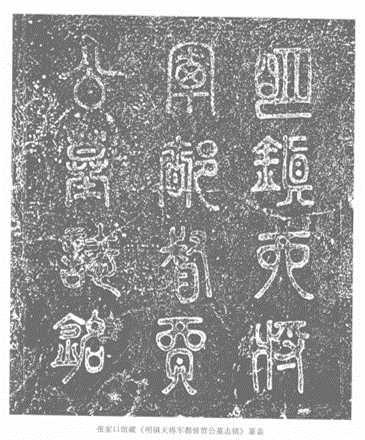 明鎮天將
軍都督賈
公墓誌銘
张家口馆藏《明镇天将军都督贾公墓志铭》篆盖